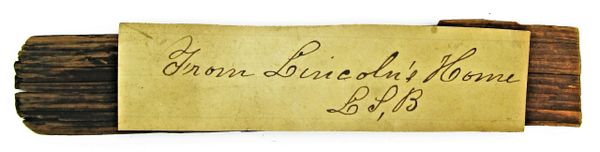 From Lincoln's Home
L S, B